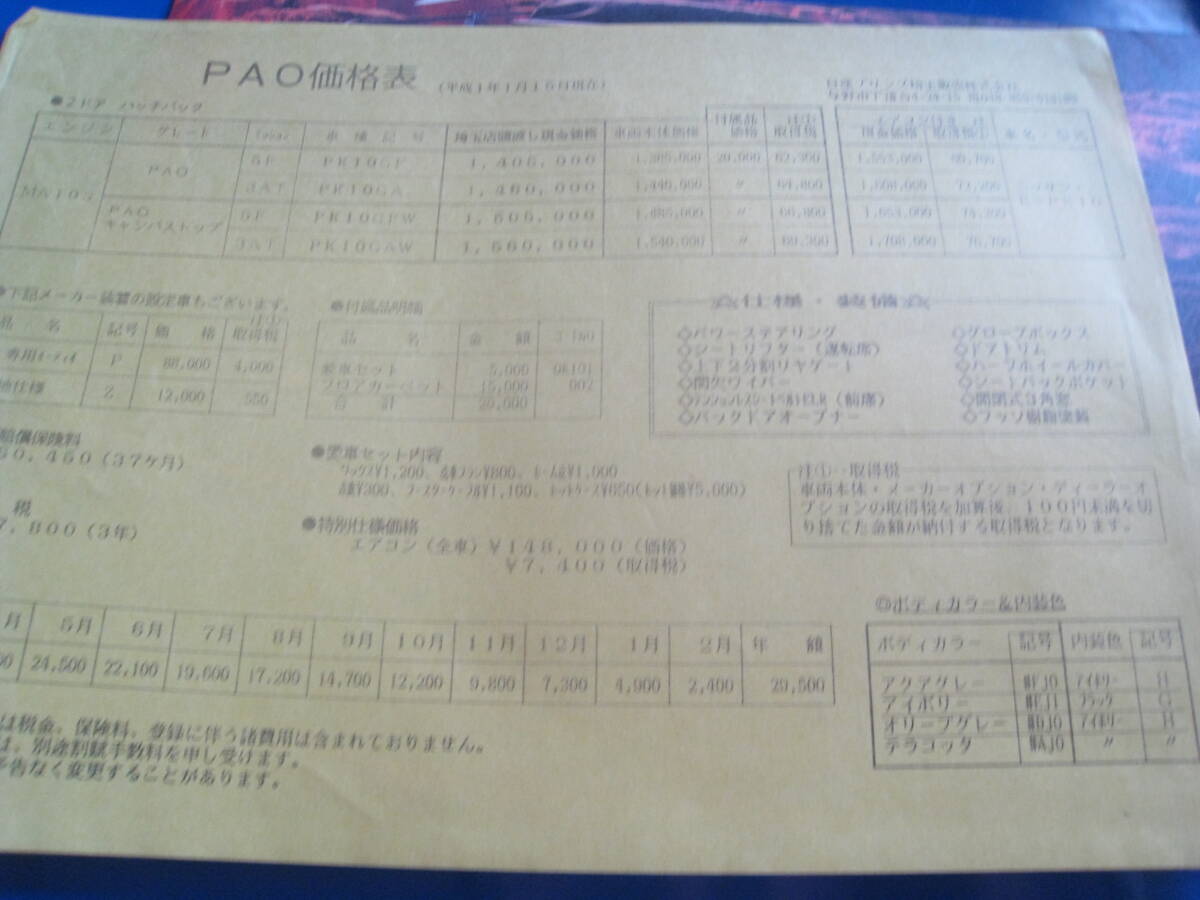 PAO価格表 (平成1年1月15日現在)
●2ドア ハッチバック
エンジン グレード 車種記号 埼玉店頭渡し現金価格 車両本体価格 付属品価格 取得税
PAO 5F PK10GF 1,405,000 1,385,000 20,000 62,300 1,553,000 69,700
3AT PK10GA 1,460,000 1,440,000 〃 64,800 1,608,000 72,200
PAO キャンバストップ 5F PK10GFW 1,505,000 1,485,000 〃 66,800 1,653,000 74,200
3AT PK10GAW 1,560,000 1,540,000 〃 69,300 1,708,000 76,700
●下記メーカー装置の設定車もございます。
品名 記号 価格 取得税
P 88,000 4,000
Z 12,000 550
●付属品明細
品名 金額
愛車セット 5,000 0K101
フロアカーペット 15,000 002
合計 20,000
☆仕様・装備☆
◇パワーステアリング ◇グローブボックス
◇シートリフター(運転席) ◇ドアトリム
◇上下2分割リヤゲート ◇ハーフホイールカバー
◇間欠ワイパー ◇シートバックポケット
◇テンションレスシートベルトELR(前席) ◇開閉式3角窓
◇バックドアオープナー ◇フッソ樹脂塗装
賠償保険料
50,450(37ケ月)
税
7,800(3年)
●愛車セット内容
ワックス¥1,200、 ¥800、 ¥1,000
¥300、ブースターケーブル¥1,100、 ¥650(セット価格¥5,000)
●特別仕様価格
エアコン(全車)¥148,000(価格)
¥7,400(取得税)
注①…取得税
車両本体・メーカーオプション・ディーラーオ
プションの取得税を加算後、100円未満を切
り捨てた金額が納付する取得税となります。
月 5月 6月 7月 8月 9月 10月 11月 12月 1月 2月 年額
24,500 22,100 19,600 17,200 14,700 12,200 9,800 7,300 4,900 2,400 29,500
◎ボディカラー&内装色
ボディカラー 記号 内装色 記号
アクアグレー #FJ0 アイボリー H
アイボリー #EJ1 ブラック G
オリーブグレー #DJ0 アイボリー H
テラコッタ #AJ0 〃 〃
は税金、保険料、登録に伴う諸費用は含まれておりません。
は、別途割賦手数料を申し受けます。
予告なく変更することがあります。